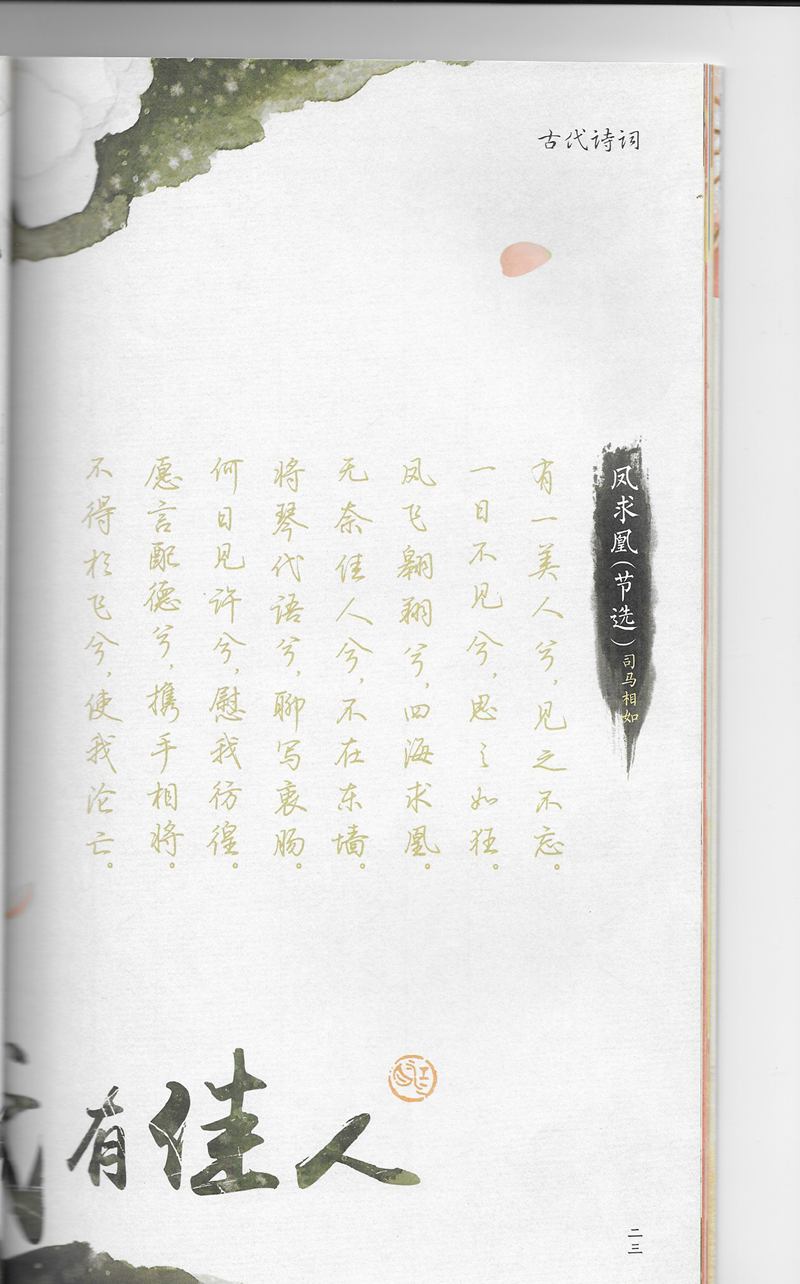 古代诗词
凤求凰（节选）司马相如
有一美人兮，见之不忘。
一日不见兮，思之如狂。
凤飞翱翔兮，四海求凰。
无奈佳人兮，不在东墙。
将琴代语兮，聊写衷肠。
何日见许兮，慰我彷徨。
愿言配德兮，携手相将。
不得於飞兮，使我沦亡。
有佳人
二三